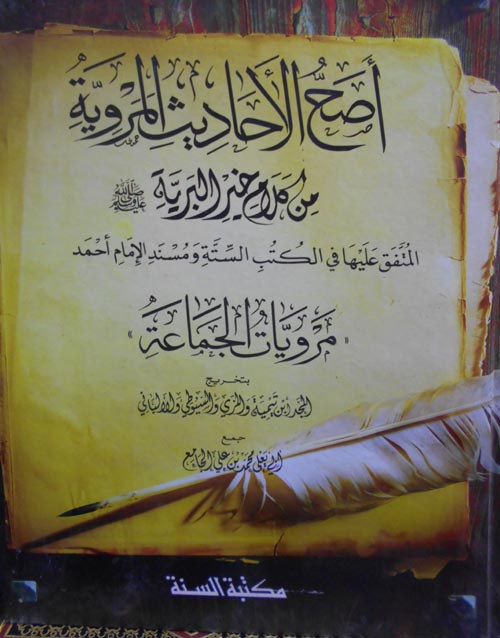 أَصَحُّ الأَحَادِيثِ المَرْوِيَّةِ
مِنْ كَلَامِ خَيْرِ البَرِيَّةِ ﷺ
المُتَّفَق عَلَيْهَا فِي الكُتُبِ السِّتَّةِ وَمُسْنَدِ الإِمَامِ أَحْمَد
«مَرْوِيَّاتُ الجَمَاعَةِ»
بتخريج
المجد ابن تيمية والمزي والسيوطي والألباني
جمع
محمد بن علي
مكتبة السنة